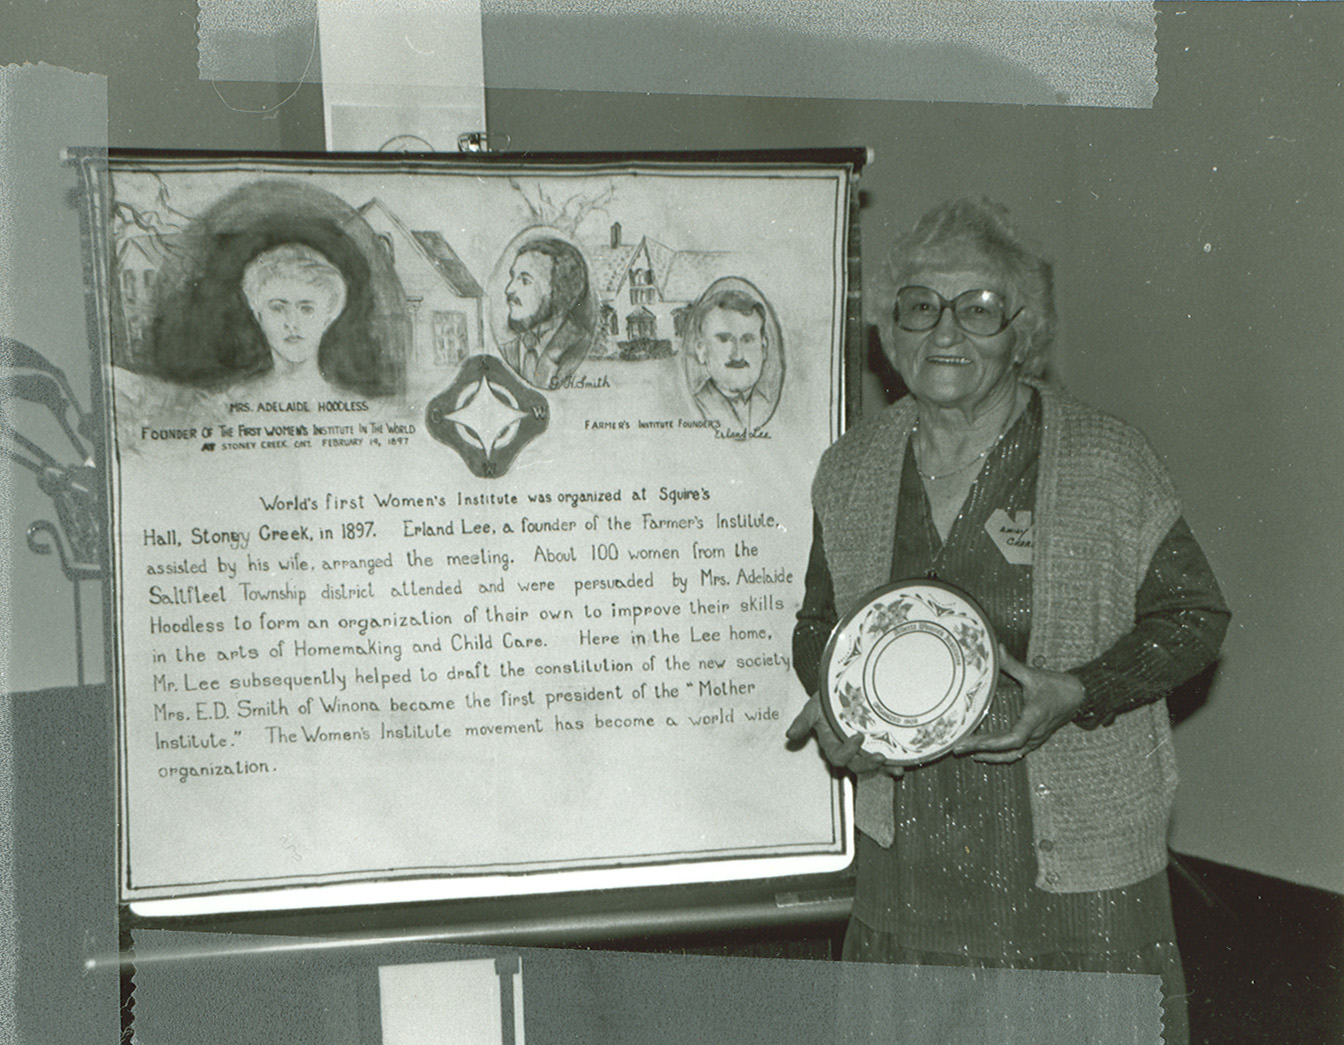 MRS. ADELAIDE HOODLESS
FOUNDER OF THE FIRST WOMEN'S INSTITUTE IN THE WORLD
AT STONEY CREEK, ONT. FEBRUARY 19, 1897
W
W
G. H. Smith
FARMER'S INSTITUTE FOUNDER'S
Erland Lee
World's first Women's Institute was organized at Squire's
Hall, Stoney Creek, in 1897. Erland Lee, a founder of the Farmer's Institute,
assisted by his wife, arranged the meeting. About 100 women from the
Saltfleet Township district attended and were persuaded by Mrs. Adelaide
Hoodless to form an organization of their own to improve their skills
in the arts of Homemaking and Child Care. Here in the Lee home,
Mr. Lee subsequently helped to draft the constitution of the new society
Mrs. E.D. Smith of Winona became the first president of the "Mother
Institute." The Women's Institute movement has become a world wide
organization.